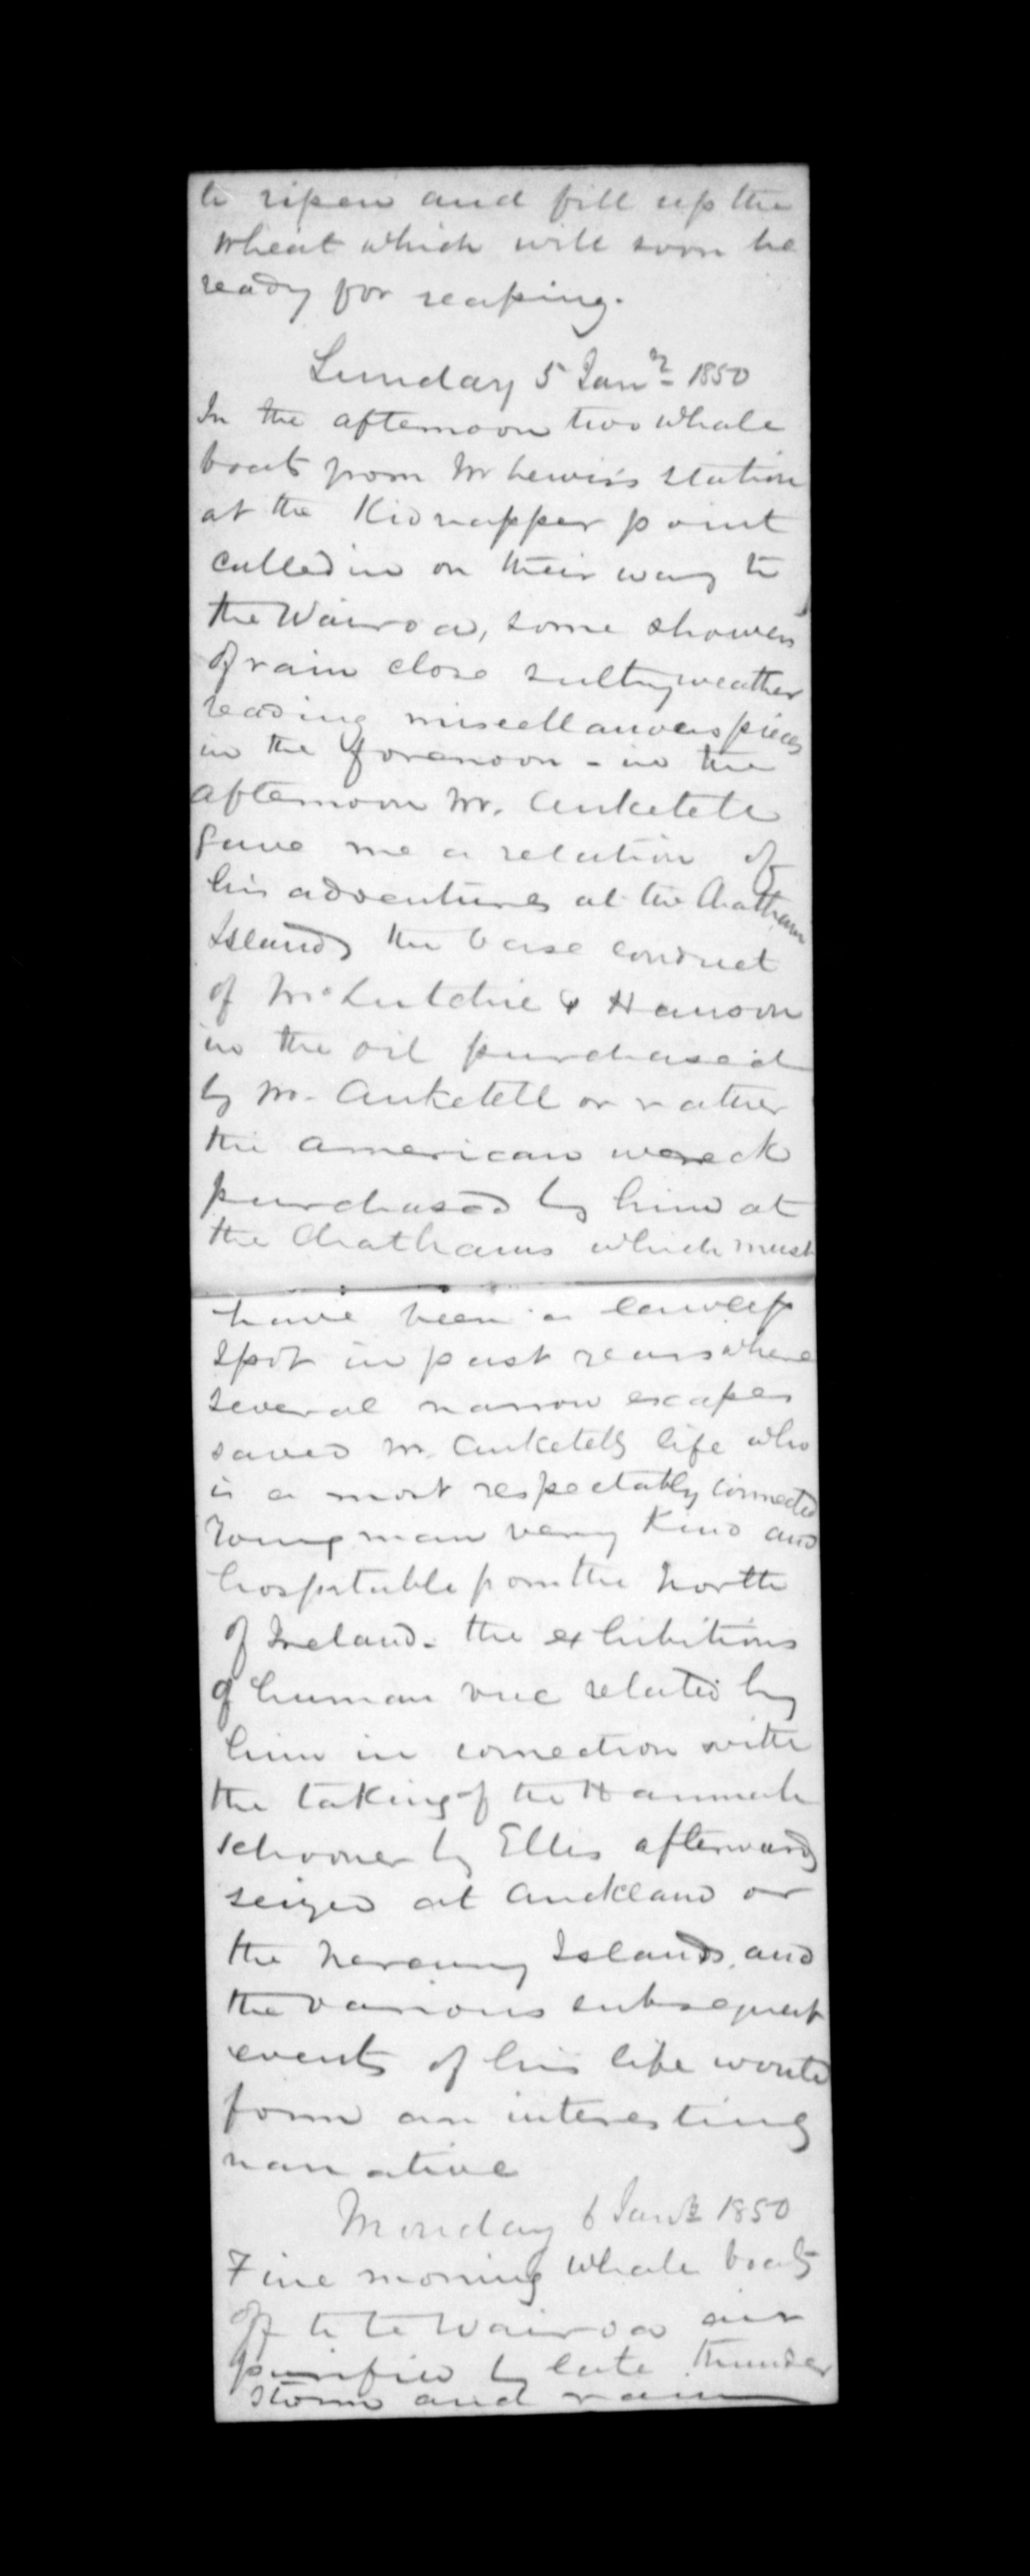 to ripen and fill up the
wheat which will soon be
ready for reaping.
Sunday 5 Jany 1850
In the afternoon two whale
boats from Mr Lewis's station
at the Kidnapper point
called in on their way to
the Wairoa, some showers
of rain close sultry weather
reading miscellaneous pieces
in the forenoon - in the
afternoon Mr. Anketell
gave me a relation of
his adventures at the Chatham
Islands the base conduct
of & Hanson
in the oil purchased
by Mr. Anketell or rather
the American wreck
purchased by him at
the Chathams which must
have been a lawless
spot in past years where
several narrow escapes
saved Mr. Anketells life who
is a most respectably connected
young man very kind and
hospitable from the North
of Ireland. the exhibitions
of human vice related by
him in connection with
the taking of the Hannah
schooner by Ellis afterwards
seized at Auckland or
the Islands, and
the various subsequent
events of his life would
form an interesting
narative
Monday 6 Jany 1850
Fine morning whale boats
off to te Wairoa air
purified by late thunder
storm and rain